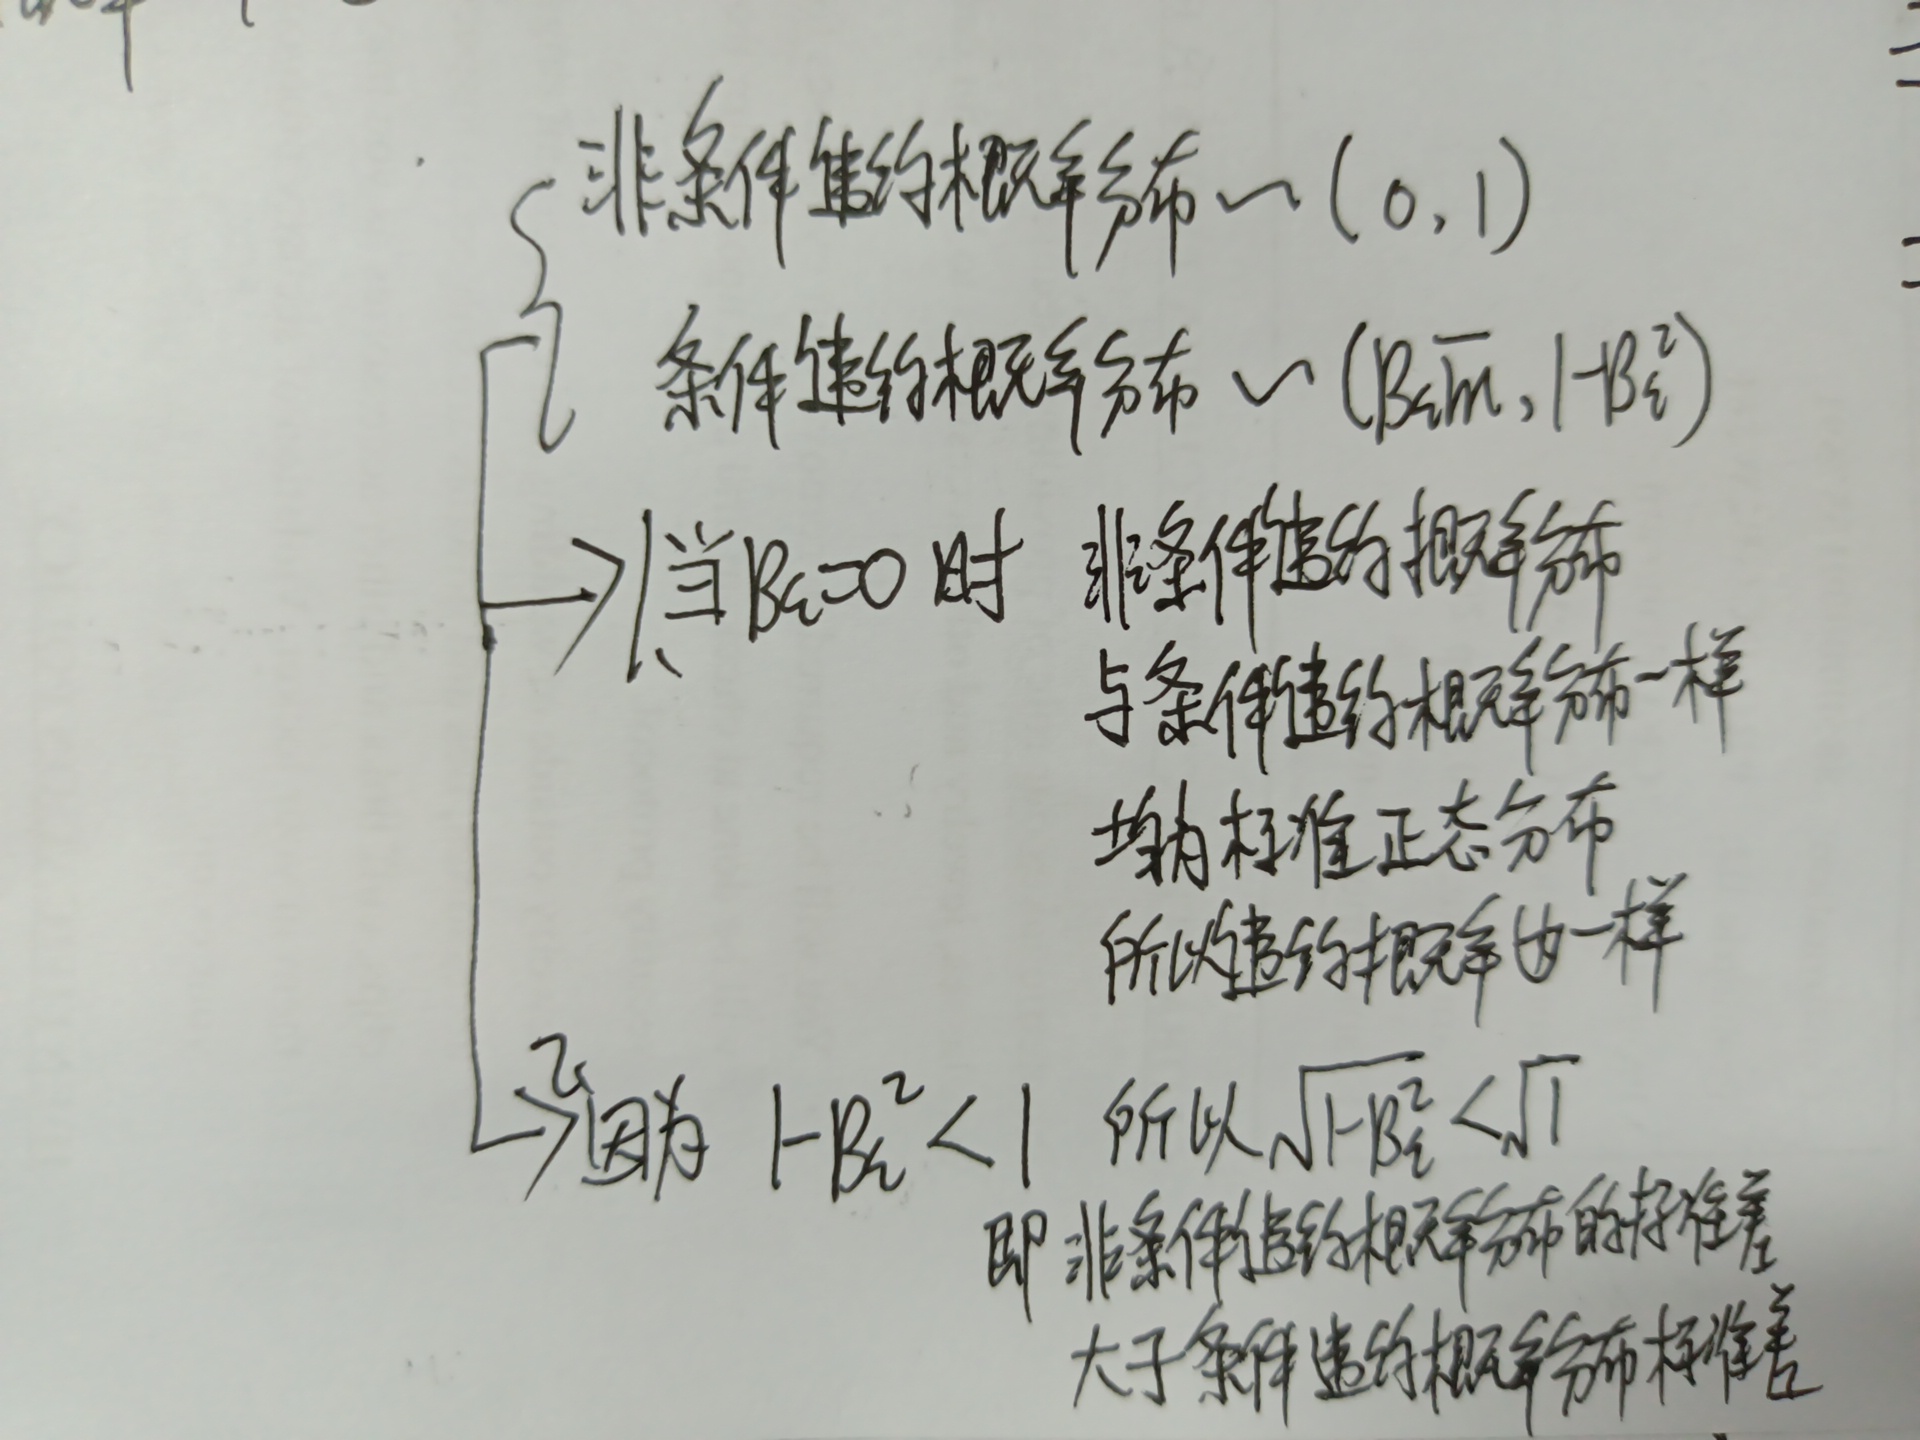 非条件违约概率分布 ~ (0,1)
条件违约概率分布 ~ (Bᵢm̅, 1-Bᵢ²)
1、当Bᵢ=0时 非条件违约概率分布
与条件违约概率分布一样
均为标准正态分布
所以违约概率也一样
2、因为 1-Bᵢ²<1 所以√(1-Bᵢ²)<√1
即非条件违约概率分布的标准差
大于条件违约概率分布标准差